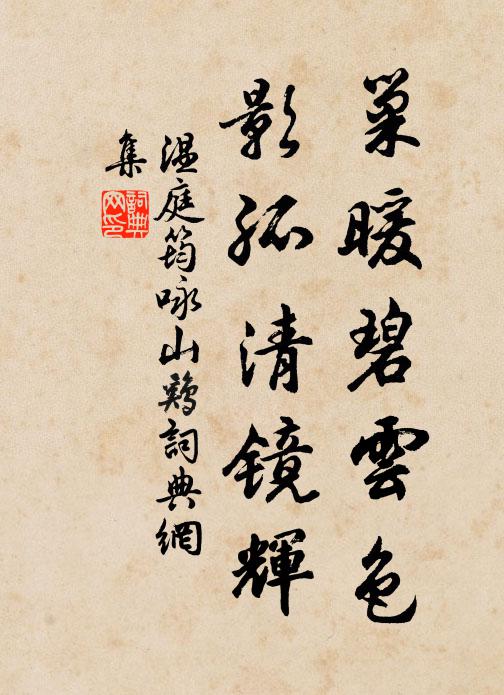 巢暖碧雲色
影孤清鏡輝
溫庭筠咏山鷄詞典網
集
詞典网印